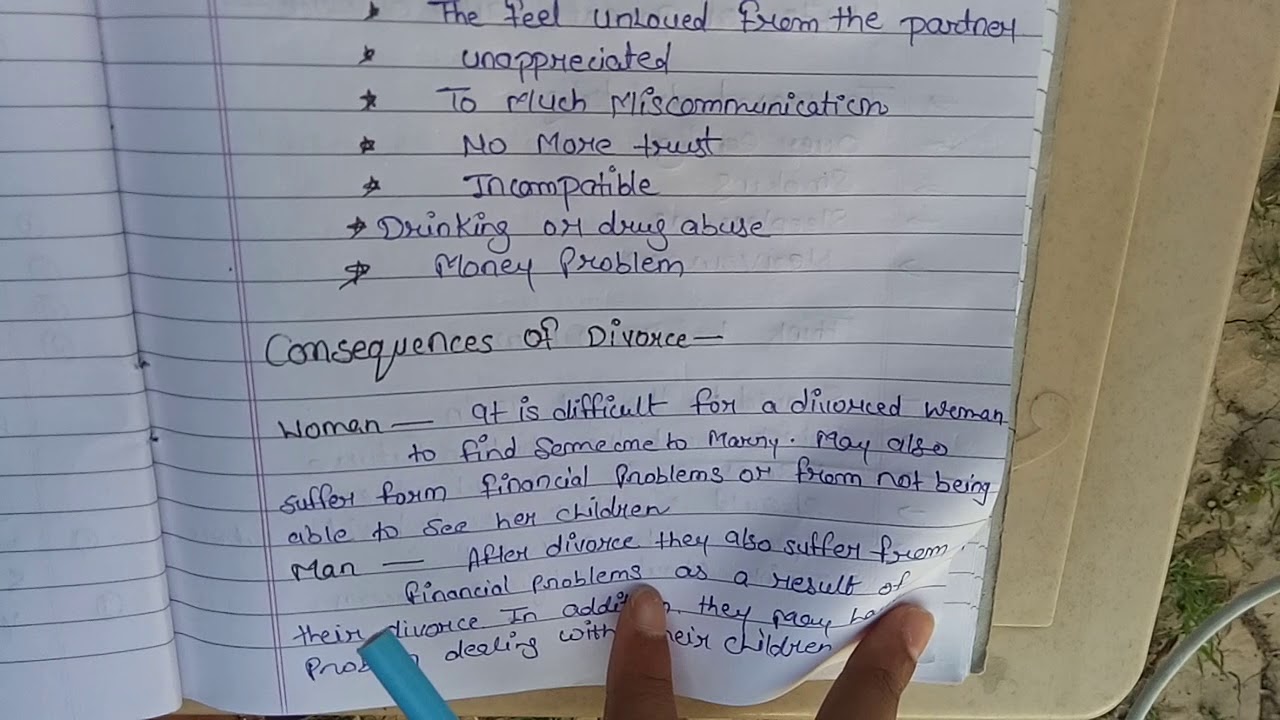 The feel unloved from the partner
unappreciated
To Much Miscommunication
No More trust
Incompatible
Drinking or drug abuse
Money Problem
Consequences of Divorce—
Woman — It is difficult for a divorced weman
to find someone to Marry. May also
suffer form financial Problems or from not being
able to see her children
Man — After divorce they also suffer from
financial Problems as a result of
their divorce In they
dealing children